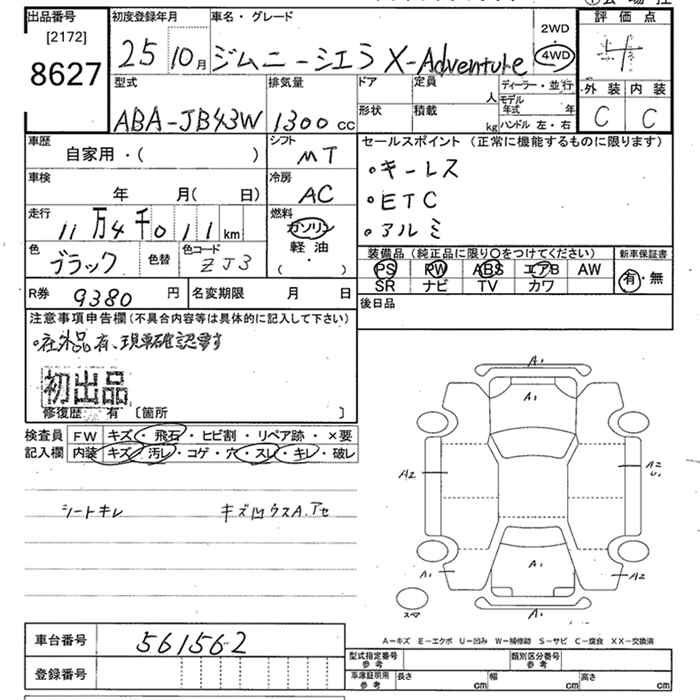 出品番号 初度登録年月 車名・グレード 評価点
[2172] 8627 25 10月 ジムニーシエラ X-Adventure 2WD 4WD
型式 排気量 ドア 定員 人 ディーラー・並行 外装 内装
ABA-JB43W 1300cc 形状 積載 kg モデル年式 年 ハンドル 左・右 C C
車歴 自家用・( ) シフト MT
セールスポイント(正常に機能するものに限ります)
・キーレス
・ETC
・アルミ
車検 年 月( 日) 冷房 AC
走行 11万4千011km 燃料 ガソリン 軽油 ( ・ )
色 ブラック 色替 色コード ZJ3
装備品(純正品に限り○をつけてください) 新車保証書
PS PW ABS エアB AW 有・無
SR ナビ TV カワ
R券 9380円 名変期限 月 日
後日品
注意事項申告欄(不具合内容等は具体的に記入して下さい)
・社外品有、現車確認要す
初出品
修復歴 有 〔箇所 〕
検査員 FW キズ・飛石・ヒビ割・リペア跡・×要
記入欄 内装 キズ・汚レ・コゲ・穴・スレ・キレ・破レ
シートキレ キズ凹ウスA.アセ
A1
A1
A2 A2 U1
A1 A1 A2
スペア A1
A-キズ E-エクボ U-凹み W-補修跡 S-サビ C-腐食 XX-交換済
車台番号 561562
登録番号
型式指定番号 参考 類別区分番号 参考
車庫証明用 参考 長さ cm 幅 cm 高さ cm